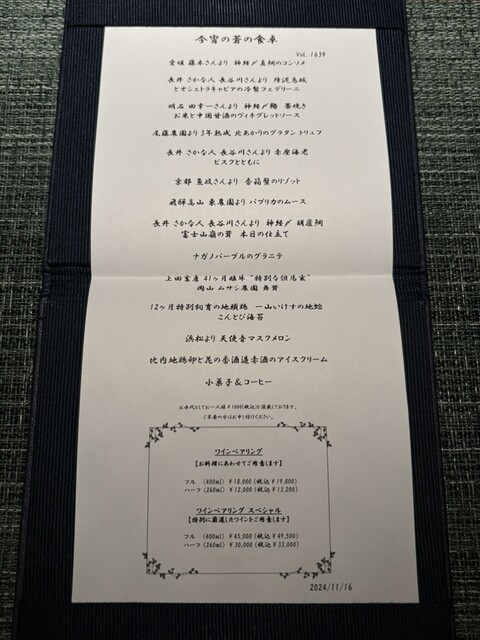 今宵の蒼の食卓
Vol. 1639
愛媛 藤本さんより 神経〆真鯛のコンソメ
長井 さかな人 長谷川さんより 障泥烏賊
とオシェトラキャビアの冷製フェデリーニ
明石 田幸一さんより 神経〆鰆 藁焼き
お米と中国甘酒のヴィネグレットソース
尾藤農園より3年熟成 北あかりのグラタン トリュフ
長井 さかな人 長谷川さんより 赤座海老
ビスクとともに
京都 魚政さんより 香箱蟹のリゾット
飛騨高山 東農園より パプリカのムース
長井 さかな人 長谷川さんより 神経〆 胡盧鯛
富士山嶺の茸 本日の仕立て
ナガノパープルのグラニテ
上田畜産 41ヶ月雌牛 "特別な但馬玄"
岡山 ムサシ農園 舞茸
12ヶ月特別飼育の地頭鶏 一山いけすの地蛤
こんとび海苔
浜松より 天使音マスクメロン
比内地鶏卵と花の香酒造赤酒のアイスクリーム
小菓子&コーヒー
お水代としてお一人様¥1000(税込)を頂戴しております。
ご不要の方はお申し付けください。
ワインペアリング
【お料理にあわせてご用意します】
フル (400ml) ¥18,000(税込¥19,800)
ハーフ(260ml) ¥12,000(税込¥13,200)
ワインペアリング スペシャル
【特別に厳選したワイントご用意します】
フル (400ml) ¥45,000(税込¥49,500)
ハーフ(260ml) ¥30,000(税込¥33,000)
2024/11/16